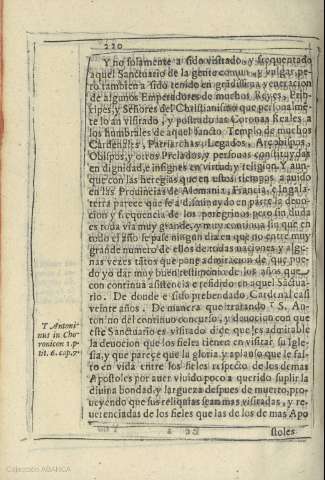 220
Y no solamente a sido visitado, y frequentado
aquel Sanctuario de la gente comun, y vulgar, pe-
ro tambien a sido tenido en grádissima veneracion
de algunos Emperadores de muchos Reyes, Prin-
cipes, y Señores del Christianismo que personalmē-
te lo an visitado, y postrado las Coronas Reales a
los humbrales de aquel sancto Templo de muchos
Cardenales, Patriarchas, Legados, Arçobispos,
Obispos, y otros Prelados, y personas constituydas
en dignidad, e insignes en virtud, y religion. Y aun-
que con las heregias que en estos tiempos a auido
en las Prouincias de Alemania, Francia, e Ingala-
terra parece que se a disminuydo en parte la deuo-
cion y frequencia de los peregrinos pero sin duda
es toda via muy grande, y muy continua sin que en
todo el año se passe ningun dia en que no entre muy
grande numero de ellos de todas naciones y algu-
nas vezes tātos que pone admiracion de que pue-
do yo dar muy buen testimonio de los años que
con continua asistencia e residido en aquel Sactua-
rio. De donde e sido prebendado Cardenal casi
veinte años. De manera que tratando S. An-
tonino del continuo concurso, y deuocion con que
este Sanctuario es visitado dize que les admirable
la deuocion que los fieles tienen en visitar su Igle-
sia, y que pareçe que la gloria y aplauso que le fal-
to en vida entre los fieles respecto de los demas
Apostoles por auer viuido poco a querido suplir la
diuina bondad, y largueza despues de muerto, pro-
ueyendo que sus reliquias sean mas visitadas, y re-
uerenciadas de los fieles que las de los demas Apo
stoles
Y Antoni-
nus in Cho-
ronicon 1.p.
tit. 6. cap. 7.
Colección ABANCA